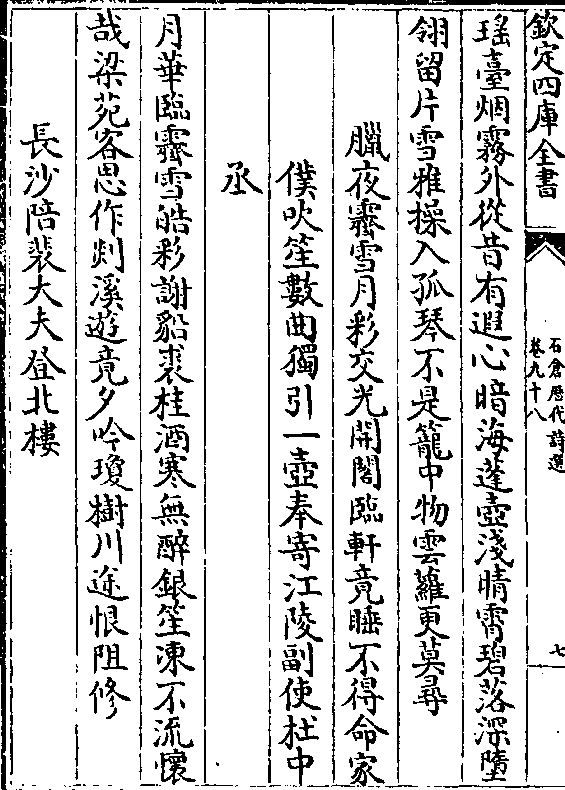 欽定四庫全書
石倉歷代詩選
卷九十八
七
瑶臺烟霧外從昔有遐心暗海蓬壺淺晴霄碧落深墮
翎留片雪雅操入孤琴不是籠中物雲蘿更莫尋
臘夜霽雪月彩交光開閣臨軒竟睡不得命家
僕吹笙數曲獨引一壺奉寄江陵副使杜中
丞
月華臨霽雪皓彩謝貂裘桂酒寒無醉銀笙凍不流懷
哉梁苑客思作剡溪遊竟夕吟瓊樹川途恨阻修
長沙陪裴大夫登北樓